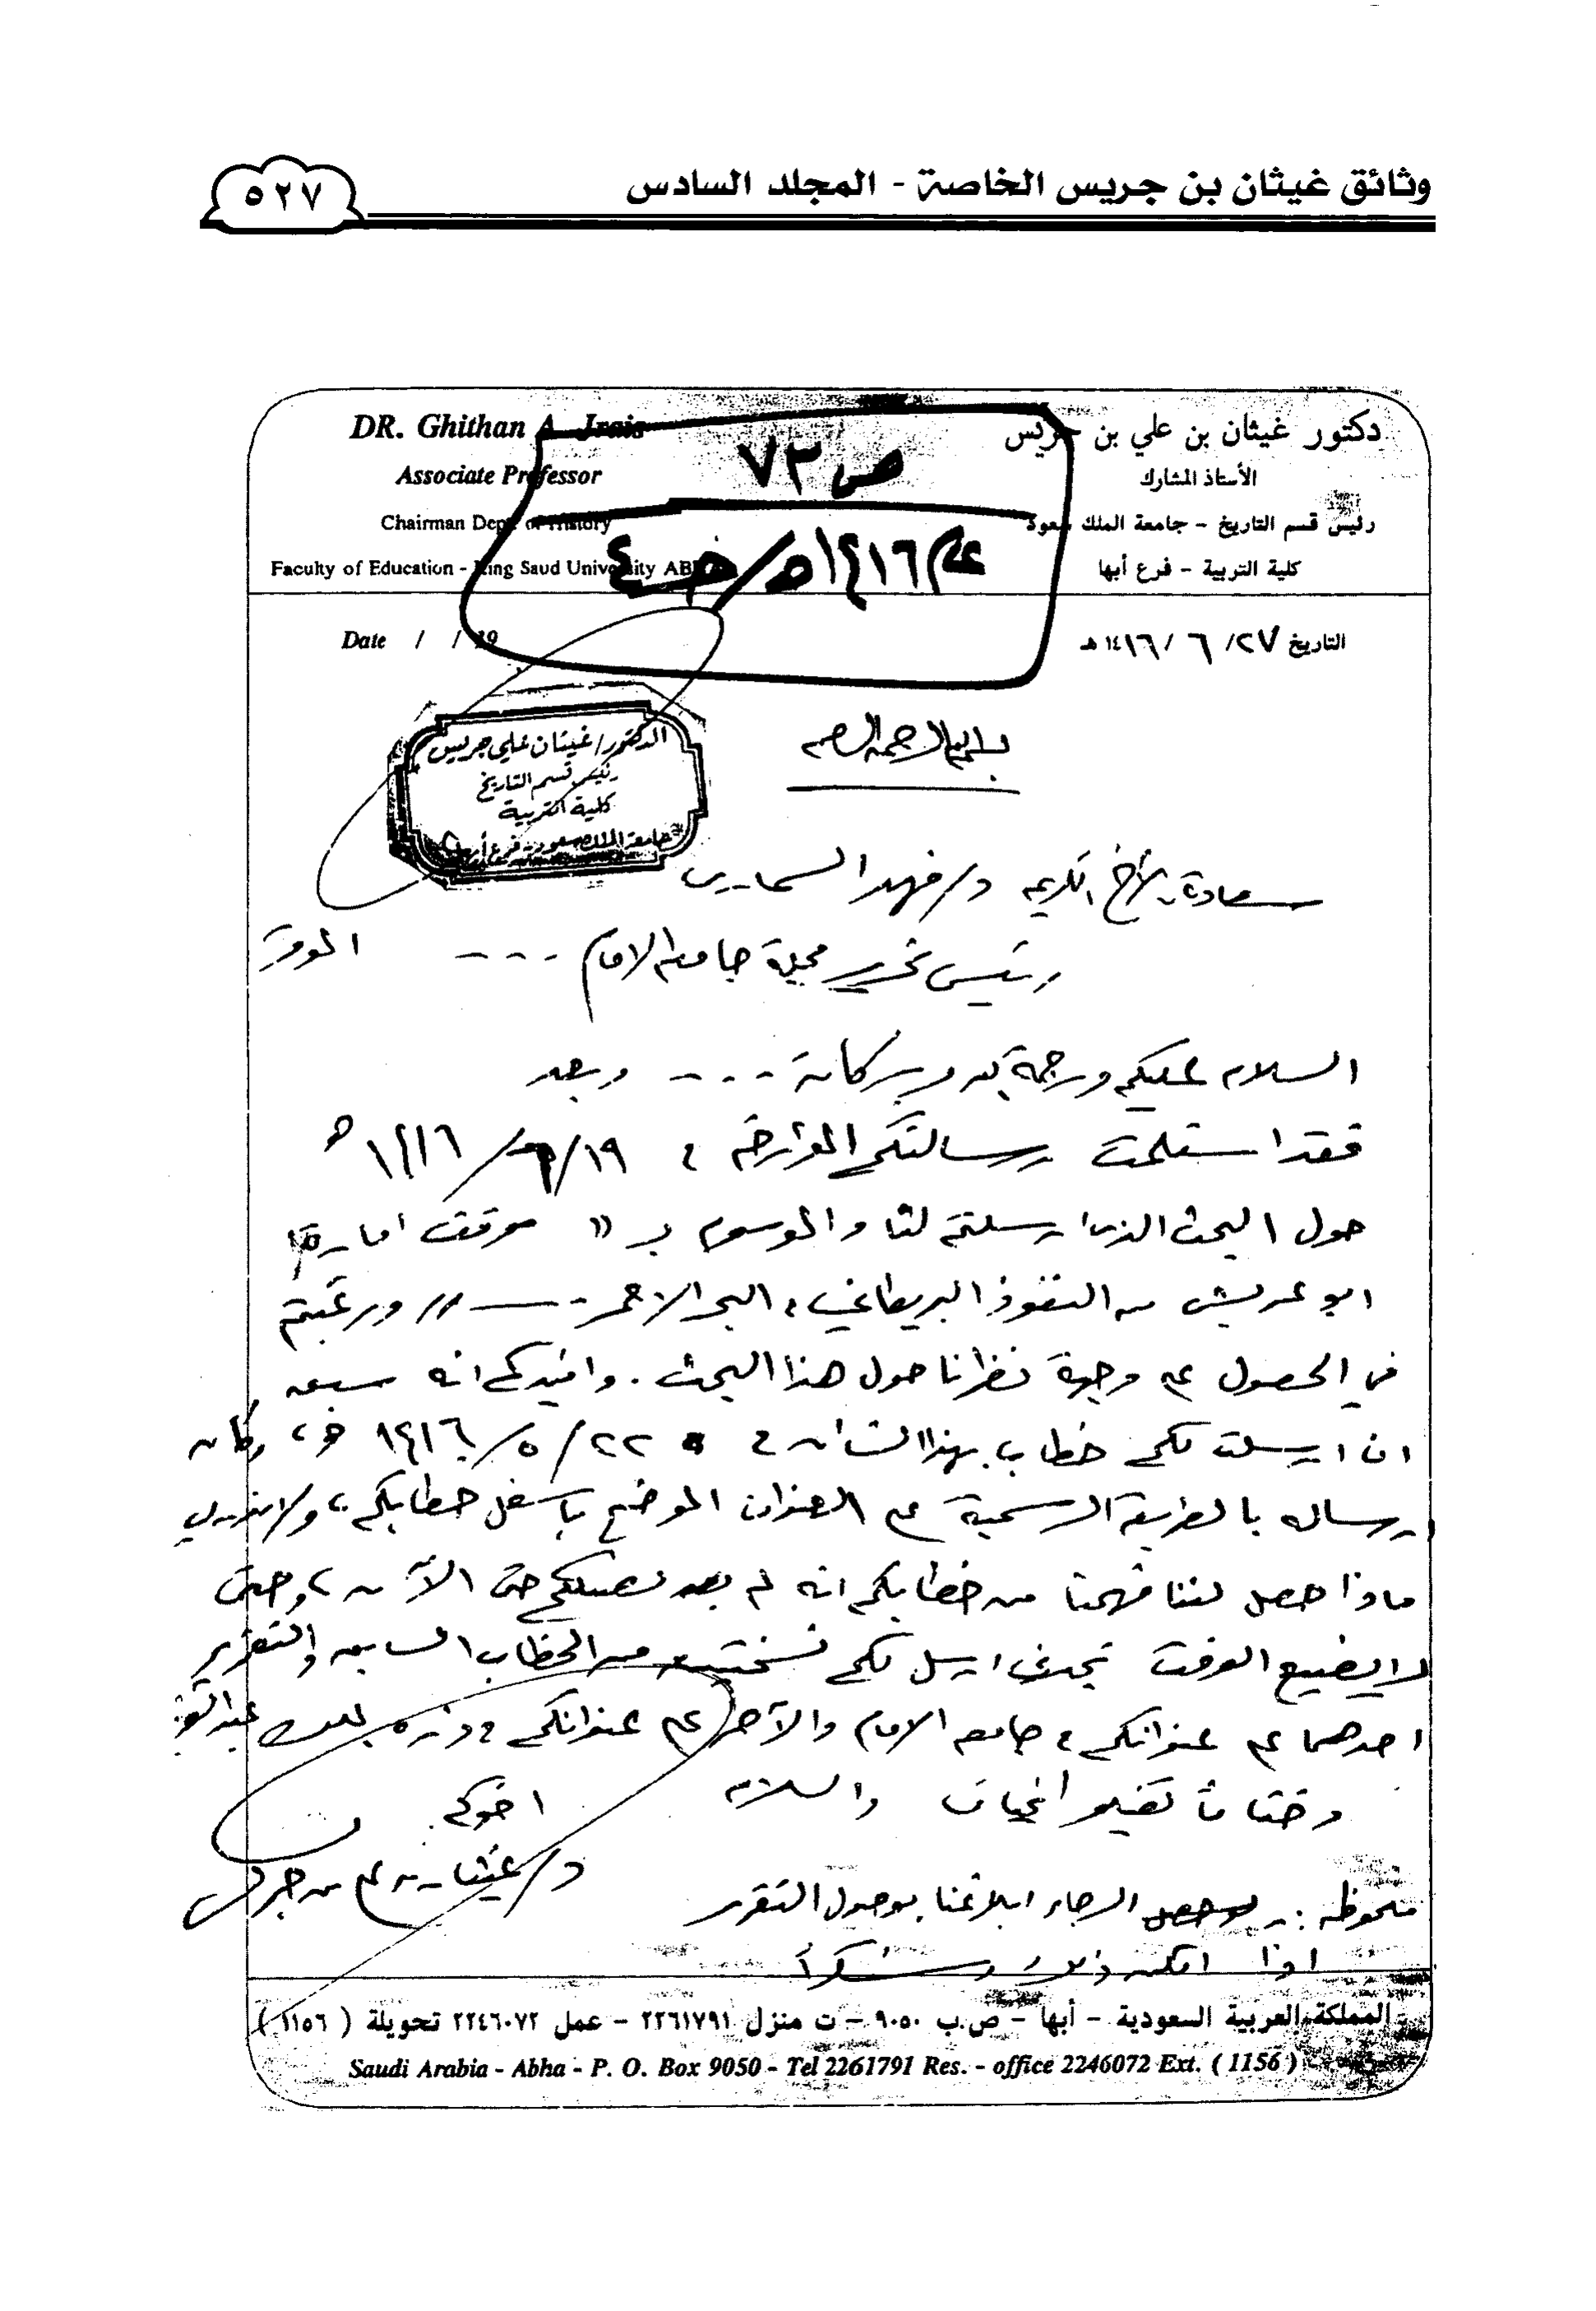 وثائق غيثان بن جريس الخاصة - المجلد السادس
٥٢٧
DR. Ghithan A. Jrais
Associate Professor
Chairman Dept. of History
Faculty of Education - King Saud University ABHA
دكتور غيثان بن علي بن جريس
الأستاذ المشارك
رئيس قسم التاريخ - جامعة الملك سعود
كلية التربية - فرع أبها
ص ٧٣
١٤١٦هـ/
Date / / 19
التاريخ ٢٧/ ٦ / ١٤١٦ هـ
بسم الله الرحمن الرحيم
الدكتور/غيثان علي جريس
رئيس قسم التاريخ
كلية التربية
جامعة الملك سعود - فرع أبها
سعادة الأخ الكريم د/ فهد السماري
رئيس تحرير مجلة جامعة الامام ... الموقر
السلام عليكم ورحمة الله وبركاته ... وبعد
فقد استلمت رسالتكم المؤرخة في ١٩/٦/١٤١٦هـ
حول البحث الذي ارسلتم لنا والموسوم بـ (( موقف امارة
ابو عريش من النفوذ البريطاني في البحر الاحمر -- )) ورغبتم
في الحصول على وجهة نظرنا حول هذا البحث . وافيدكم انه سبق
ان ارسلت لكم خطاب بهذا الشأن في ٢٢/ ٥/ ١٤١٦هـ، وكان
ارساله بالطريقة الرسمية على العنوان الموضح بأسفل خطابكم، ولا ندري
ماذا حصل لاننا فهمنا من خطابكم انه لم يصلكم حتى الآن ، وحتى
لا يضيع الوقت تجدني ارسل لكم نسختين من الخطاب السابق والتقرير
احدهما على عنوانكم في جامعة الامام والآخر على عنوانكم في دارة الملك عبدالعزيز
وختاماً تقبلو تحياتي والسلام
اخوكم
د/ غيثان بن علي بن جريس
ملحوظة :- الرجاء ابلاغنا بوصول التقرير
اذا امكن ذلك وشكراً
المملكة العربية السعودية - أبها - ص.ب ٩٠٥٠ - ت منزل ٢٢٦١٧٩١ - عمل ٢٢٤٦٠٧٢ تحويلة ( ١١٥٦ )
Saudi Arabia - Abha - P. O. Box 9050 - Tel 2261791 Res. - office 2246072 Ext. ( 1156 )